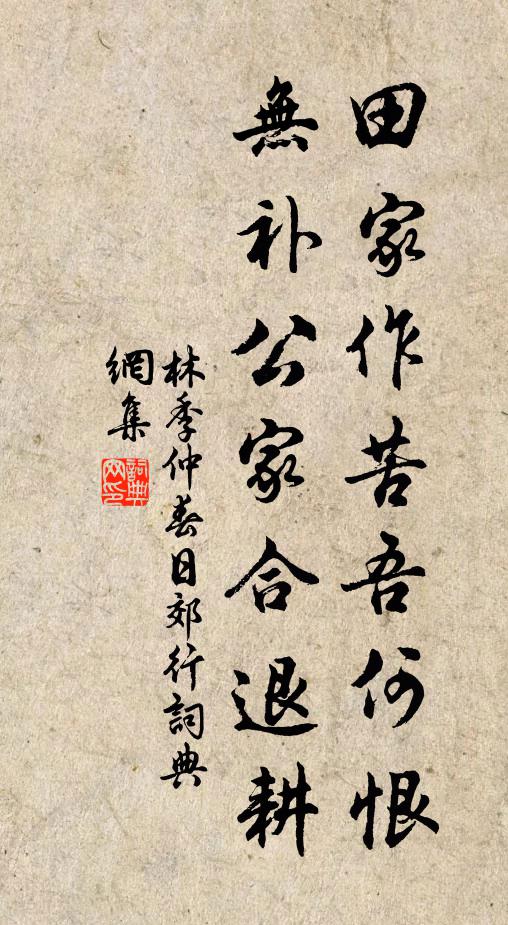 田家作苦吾何恨
無补公家合退耕
林季仲春日郊行詞典
網集
詞典网印